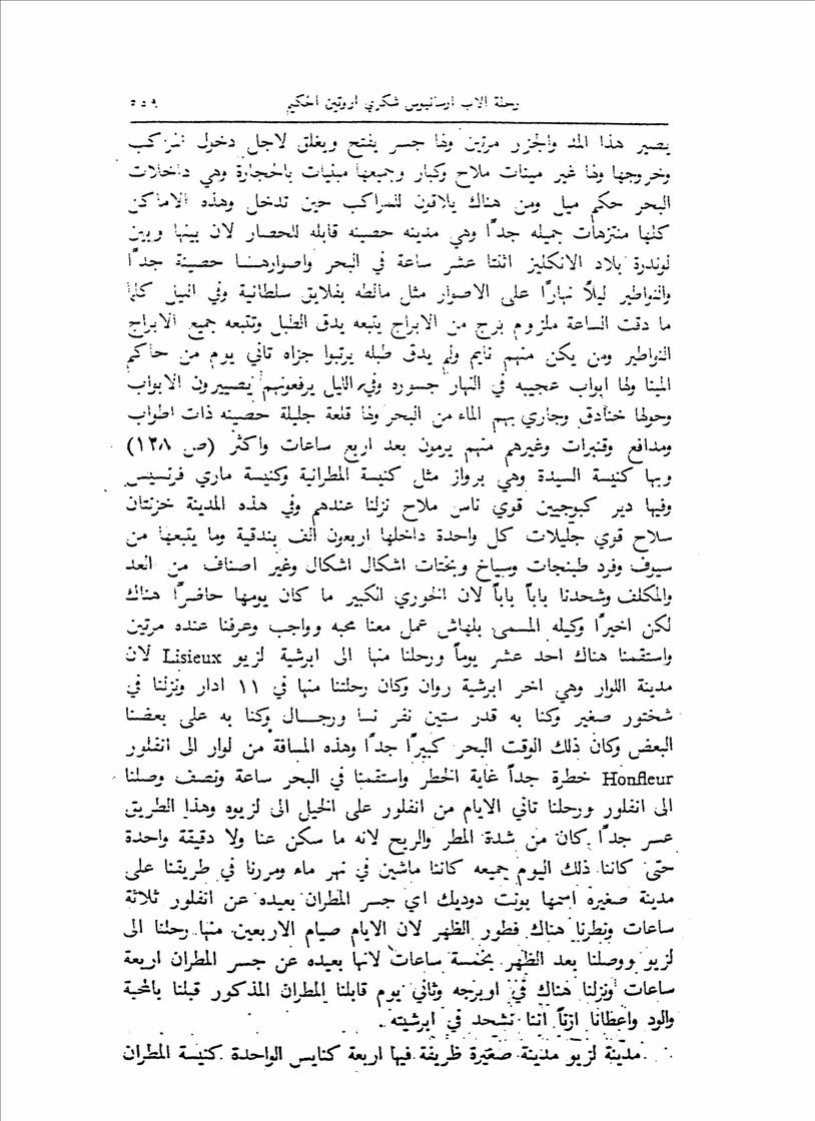 رحلة الاب ارسانيوس شكري اروتين الحكيم
يصير هذا المد والجزر مرتين ولها جسر يفتح ويغلق لاجل دخول المراكب
وخروجها ولها غير مينات ملاح وكبار وجميعها مبنيات بالحجارة وهي داخلات
البحر حكم ميل ومن هناك يلاقون للمراكب حين تدخل وهذه الاماكن
كلها منتزهات جميله جدًّا وهي مدينه حصينه قابله للحصار لان بينها وبين
لوندرة بلاد الانكليز اثنتا عشر ساعة في البحر واصوارهـــا حصينة جدًّا
والنواطير ليلاً نهارًا على الاصوار مثل مالطه بفلايق سلطانية وفي الليل كلما
ما دقت الساعة ملزوم برج من الابراج يتبعه يدق الطبل وتتبعه جميع الابراج
النواطير ومن يكن منهم نايم ولم يدق طبله يرتبوا جزاه تاني يوم من حاكم
المينا ولها ابواب عجيبه في النهار جسوره وفي الليل يرفعونهم يصيرون الابواب
وحولها خنادق وجاري بهم الماء من البحر ولها قلعة جليلة حصينه ذات اطواب
ومدافع وقنبرات وغيرهم منهم يرمون بعد اربع ساعات واكثر (ص ١٢٨)
وبها كنيسة السيدة وهي برواز مثل كنيسة المطرانية وكنيسة ماري فرنسيس
وفيها دير كبوجيين قوي ناس ملاح نزلنا عندهم وفي هذه المدينة خزنتان
سلاح قوي جليلات كل واحدة داخلها اربعون الف بندقية وما يتبعها من
سيوف وفرد طبنجات وسياخ وبختات اشكال اشكال وغير اصناف من العد
والمكلف وشحدنا باباً باباً لان الخوري الكبير ما كان يومها حاضرًا هناك
لكن اخيرًا وكيله المسمى بلهاش عمل معنا محبه وواجب وعرفنا عنده مرتين
واستقمنا هناك احد عشر يوماً ورحلنا منها الى ابرشية لزيو Lisieux لان
مدينة اللوار وهي اخر ابرشية روان وكان رحلتنا منها في ١١ ادار ونزلنا في
شختور صغير وكنا به قدر ستين نفر نسا ورجــال وكنا به على بعضنا
البعض وكان ذلك الوقت البحر كبيرًا جدًّا وهذه المسافة من لوار الى انفلور
Honfleur خطرة جداً غاية الخطر واستقمنا في البحر ساعة ونصف وصلنا
الى انفلور ورحلنا تاني الايام من انفلور على الخيل الى لزيوه وهذا الطريق
عسر جدًّا كان من شدة المطر والريح لانه ما سكن عنا ولا دقيقة واحدة
حتى كاننا ذلك اليوم جميعه كاننا ماشين في نهر ماء ومررنا في طريقنا على
مدينة صغيرة اسمها بونت دوديك اي جسر المطران بعيده عن انفلور ثلاثة
ساعات وفطرنا هناك فطور الظهر لان الايام صيام الاربعين منها رحلنا الى
لزيو ووصلنا بعد الظهر بخمسة ساعات لانها بعيده عن جسر المطران اربعة
ساعات ونزلنا هناك في اوبرجه وثاني يوم قابلنا المطران المذكور قبلنا بالمحبة
والود واعطانا ازناً اننا نشحد في ابرشيته .
مدينة لزيو مدينة صغيرة ظريفة فيها اربعة كنايس الواحدة كنيسة المطران